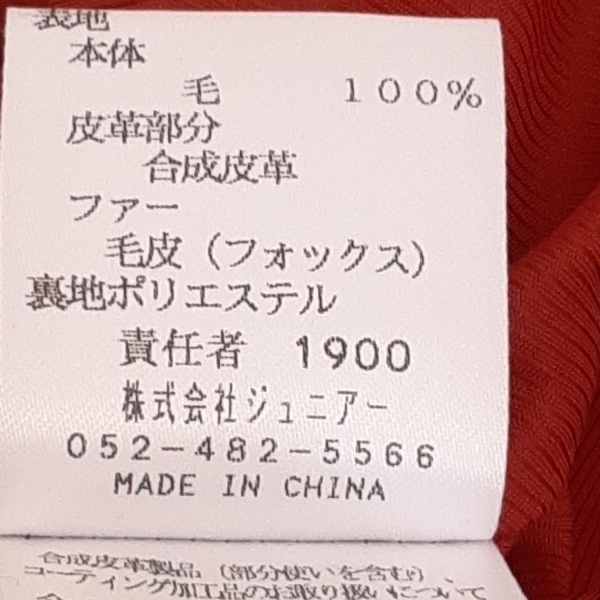 表地
本体
毛 100%
皮革部分
合成皮革
ファー
毛皮（フォックス）
裏地ポリエステル
責任者 1900
株式会社ジュニアー
052-482-5566
MADE IN CHINA
合成皮革製品（部分使いを含む）、
コーティング加工品のお取り扱いについて